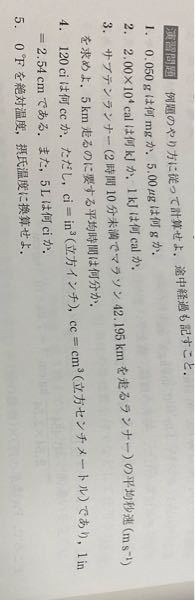 演習問題 例題のやり方に従って計算せよ. 途中経過も記すこと.
1. 0.050 gは何 mg か. 5.00 μg は何 g か.
2. 2.00×10⁴ cal は何 kJ か. 1 kJ は何 cal か.
3. サブテンランナー(2時間10分未満でマラソン 42.195 km を走るランナー)の平均秒速(m s⁻¹)
を求めよ. 5 km 走るのに要する平均時間は何分か.
4. 120 ci は何 cc か. ただし, ci=in³(立方インチ), cc=cm³(立方センチメートル)であり, 1 in
=2.54 cm である. また, 5 L は何 ci か.
5. 0 °F を絶対温度, 摂氏温度に換算せよ.